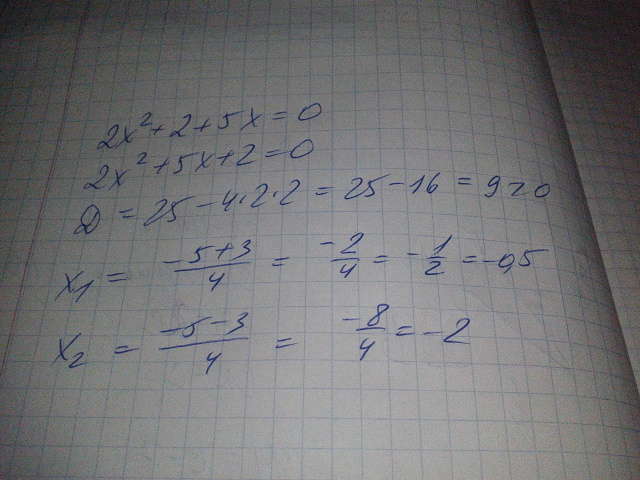 2x² + 2 + 5x = 0
2x² + 5x + 2 = 0
D = 25 - 4·2·2 = 25 - 16 = 9 > 0
x₁ = (-5+3)/4 = -2/4 = -1/2 = -0,5
x₂ = (-5-3)/4 = -8/4 = -2